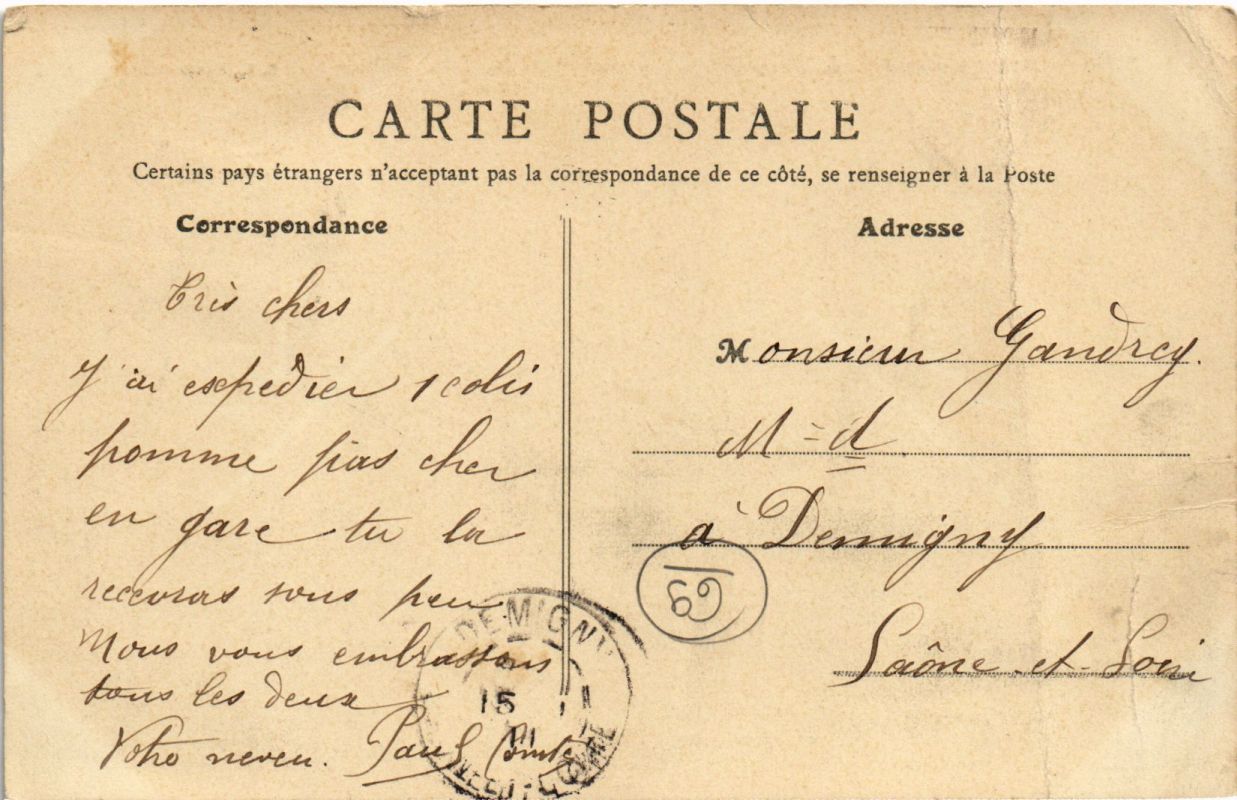 CARTE POSTALE
Certains pays étrangers n'acceptant pas la correspondance de ce côté, se renseigner à la Poste
Correspondance
Très chers
J'ai expedier 1 colis
pomme pas cher
en gare tu la
recevras sous peu
Nous vous embrassons
tous les deux
Votre neveu. Paul Comte
Adresse
Monsieur Gandrey.
M=d
à Demigny
Saône-et-Loire
69
DEMIGNY
15
SAÔNE-ET-LOIRE